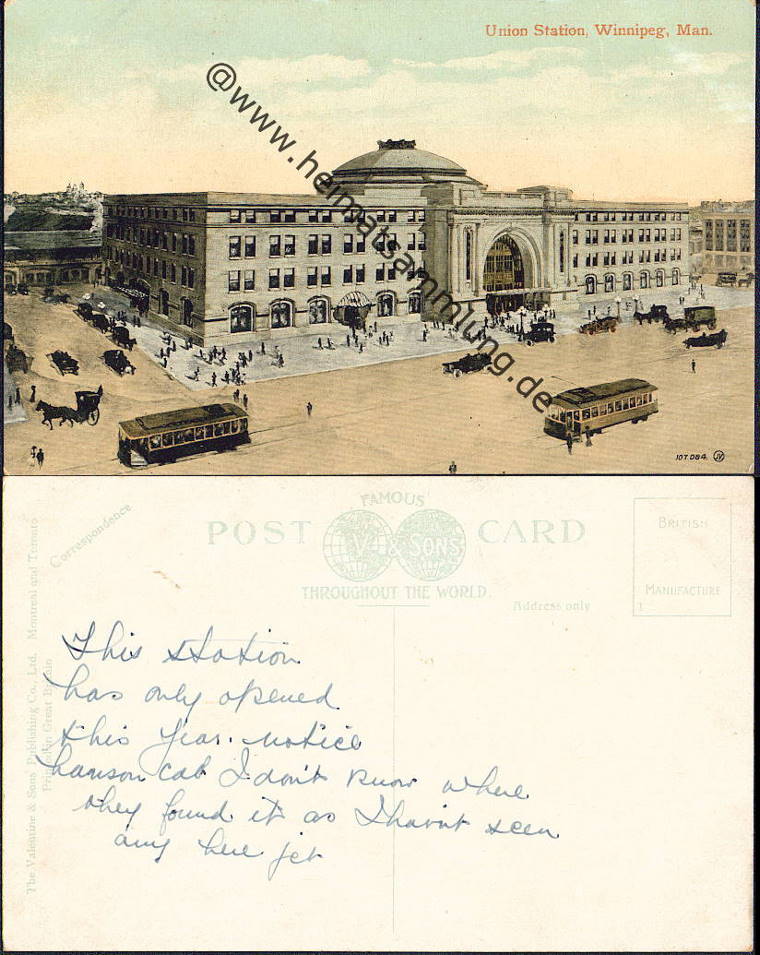 Union Station, Winnipeg, Man.
@www.heimatsammlung.de
107.084. JV
Correspondence
FAMOUS
POST CARD
V. & SONS
THROUGHOUT THE WORLD.
Address only
BRITISH
MANUFACTURE
The Valentine & Sons' Publishing Co., Ltd. Montreal and Toronto
Printed in Great Britain
This station
has only opened
this year. notice
hanson cab I don't know where
they found it as I havn't seen
any here yet